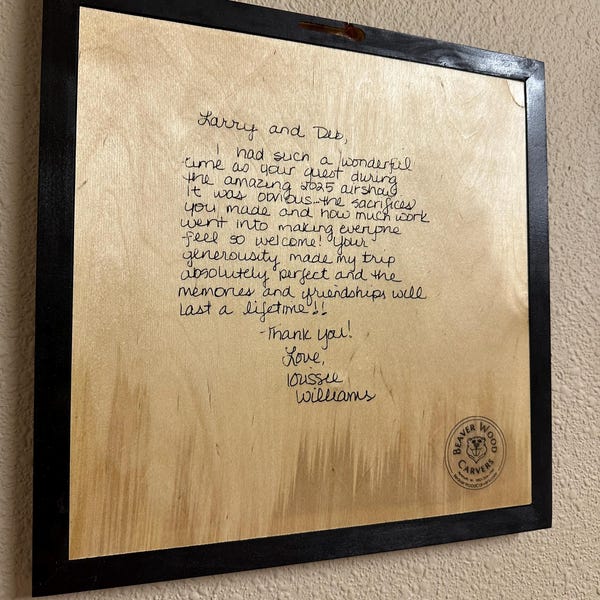 Larry and Deb,
I had such a wonderful
time as your guest during
the amazing 2025 airshow.
It was obvious the sacrifices
you made and how much work
went into making everyone
feel so welcome! Your
generousity made my trip
absolutely perfect and the
memories and friendships will
last a lifetime!!
-Thank you!
Love,
Williams
BEAVER WOOD
CARVERS